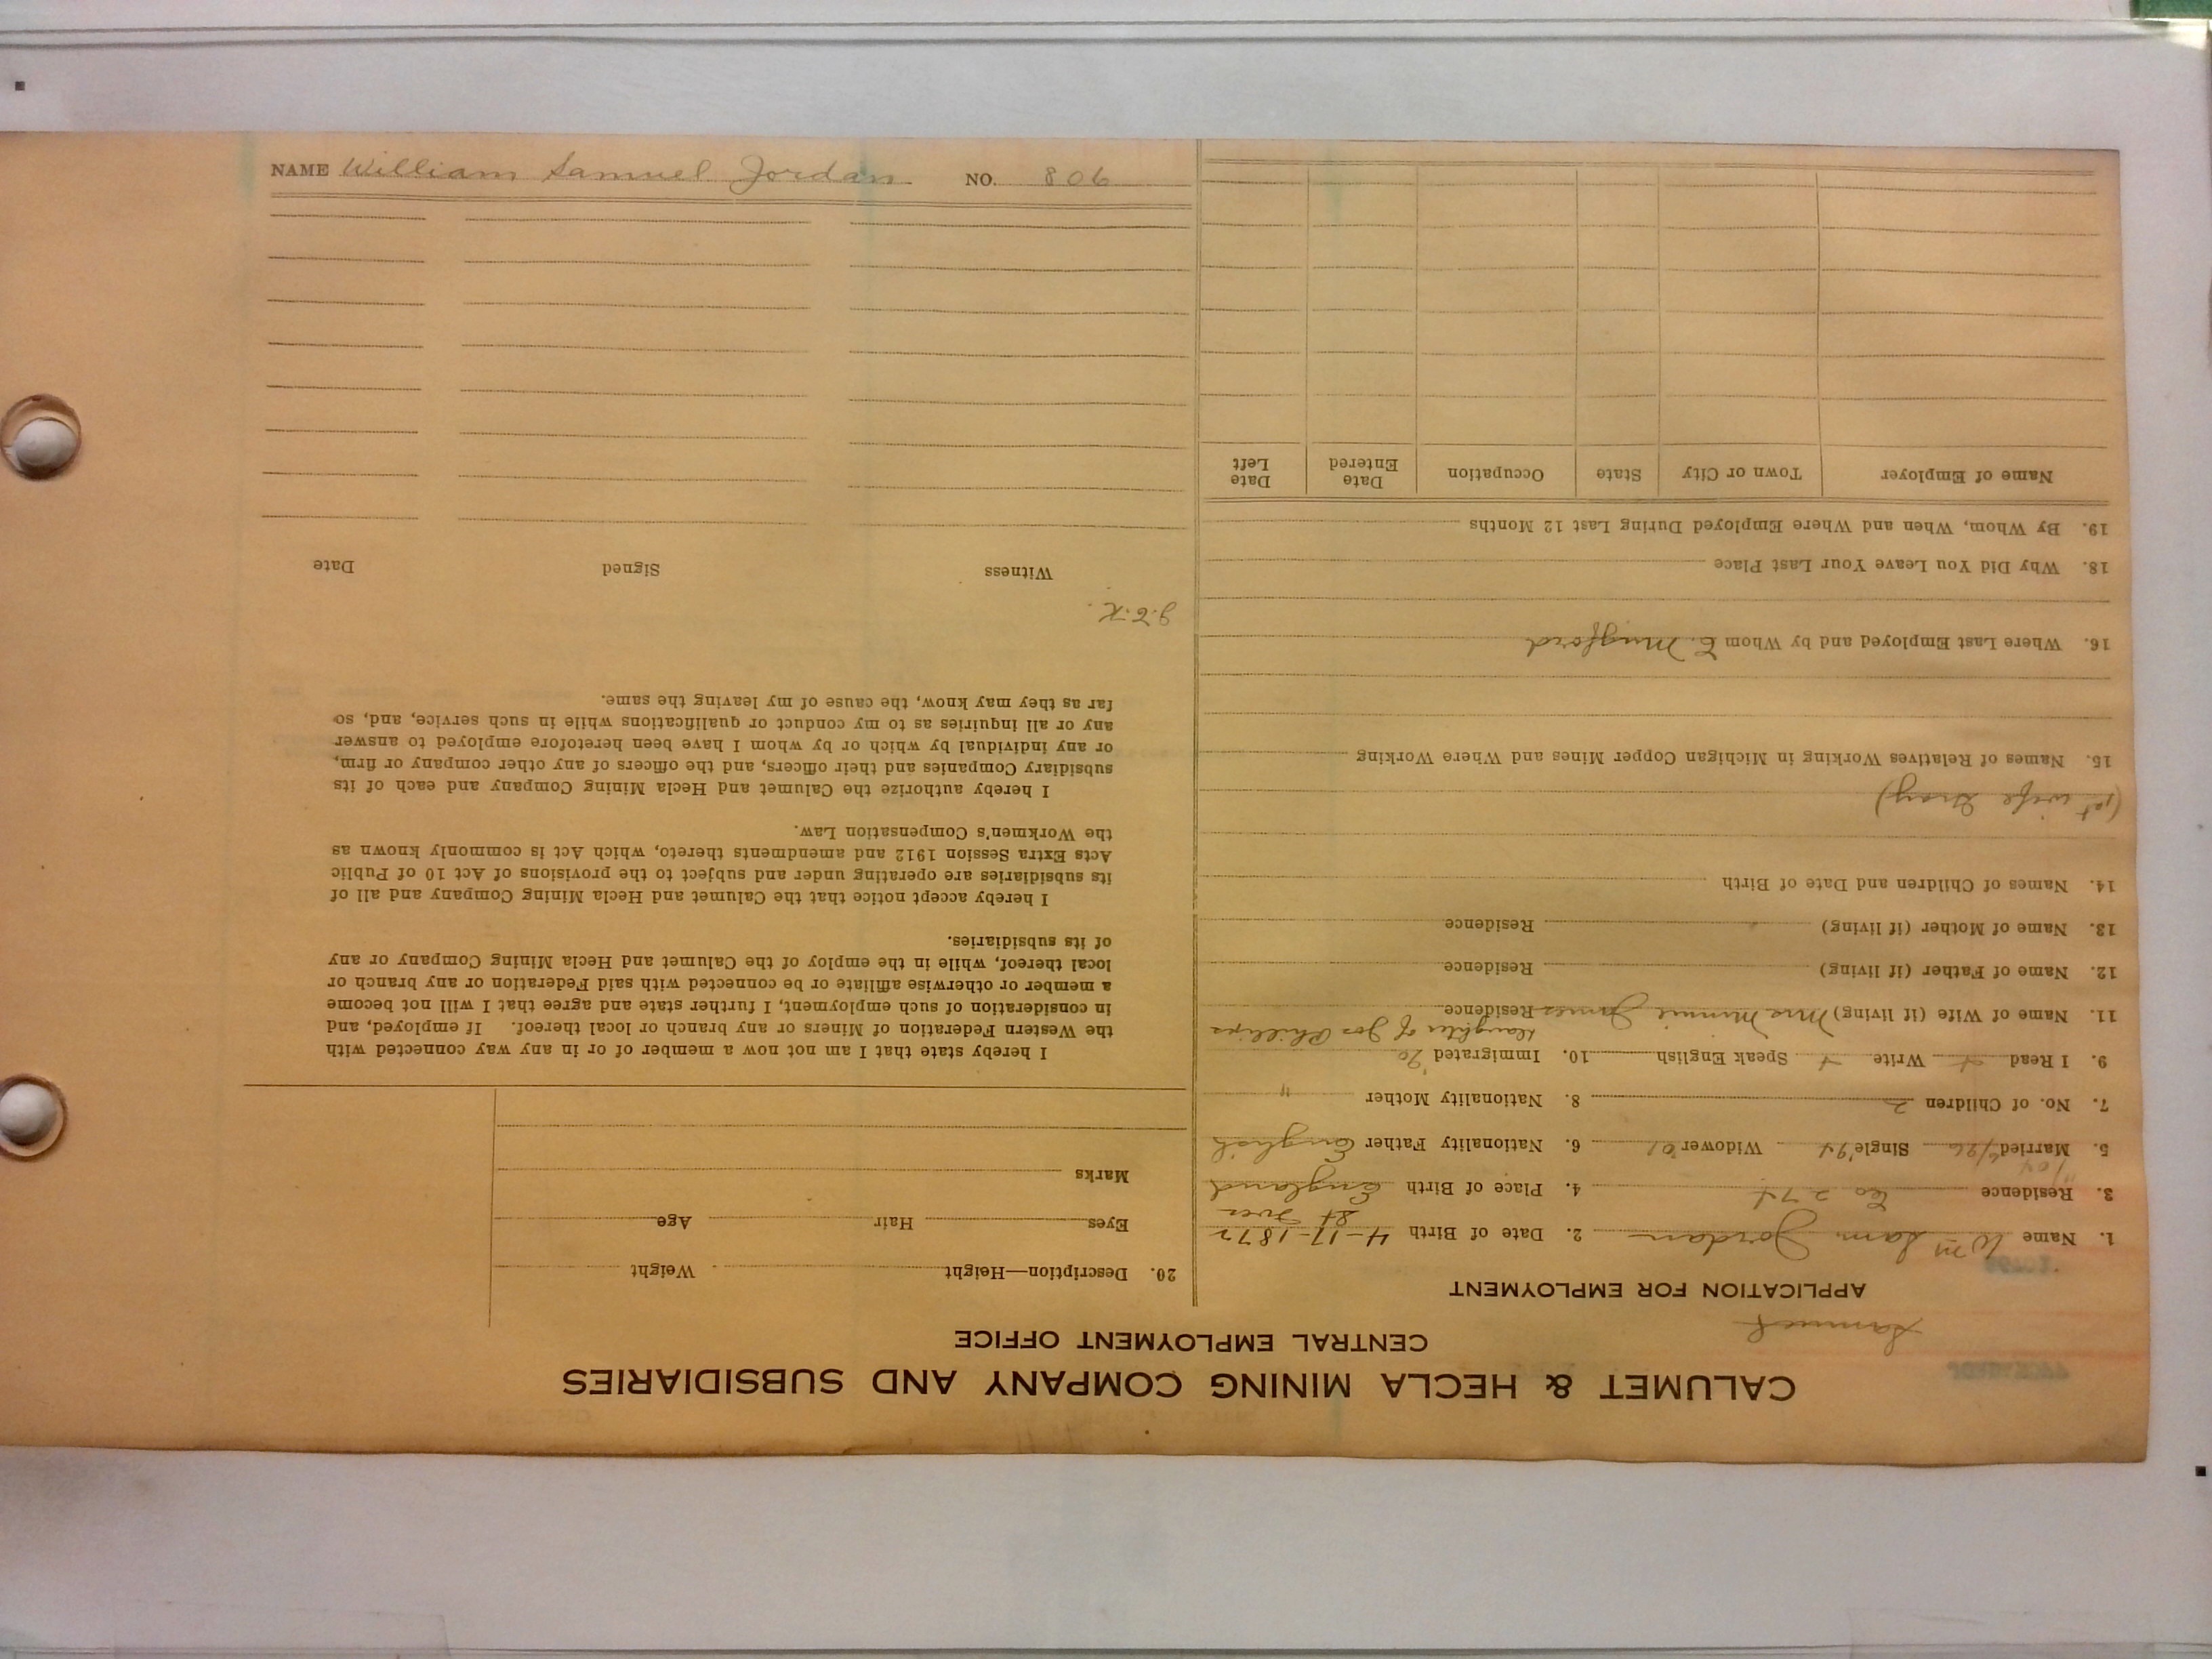 CALUMET & HECLA MINING COMPANY AND SUBSIDIARIES
CENTRAL EMPLOYMENT OFFICE
Samuel
APPLICATION FOR EMPLOYMENT
1. Name Wm Sam Jordan 2. Date of Birth 4-17-1872
St Ives
3. Residence Co 274 4. Place of Birth England
5. Married Single '94 Widower '01 6. Nationality Father English
7. No. of Children 2 8. Nationality Mother "
9. I Read Write Speak English 10. Immigrated
daughter of Jos Phillips
11. Name of Wife (if living) Mrs Minnie James Residence
12. Name of Father (if living) Residence
13. Name of Mother (if living) Residence
14. Names of Children and Date of Birth
(1st wife Gray)
15. Names of Relatives Working in Michigan Copper Mines and Where Working
16. Where Last Employed and by Whom E. Mugford
18. Why Did You Leave Your Last Place
19. By Whom, When and Where Employed During Last 12 Months
Name of Employer Town or City State Occupation Date Entered Date Left
20. Description—Height Weight
Eyes Hair Age
Marks
I hereby state that I am not now a member of or in any way connected with
the Western Federation of Miners or any branch or local thereof. If employed, and
in consideration of such employment, I further state and agree that I will not become
a member or otherwise affiliate or be connected with said Federation or any branch or
local thereof, while in the employ of the Calumet and Hecla Mining Company or any
of its subsidiaries.
I hereby accept notice that the Calumet and Hecla Mining Company and all of
its subsidiaries are operating under and subject to the provisions of Act 10 of Public
Acts Extra Session 1912 and amendments thereto, which Act is commonly known as
the Workmen's Compensation Law.
I hereby authorize the Calumet and Hecla Mining Company and each of its
subsidiary Companies and their officers, and the officers of any other company or firm,
or any individual by which or by whom I have been heretofore employed to answer
any or all inquiries as to my conduct or qualifications while in such service, and, so
far as they may know, the cause of my leaving the same.
Witness Signed Date
NAME William Samuel Jordan NO. 806